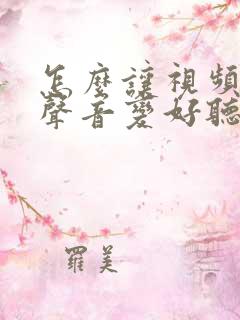 怎麼讓視頻
聲音變好聽
羅美